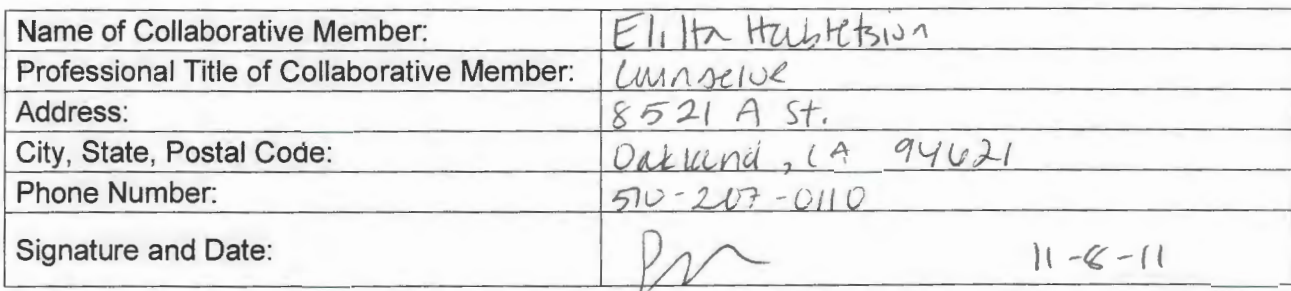 Name of Collaborative Member: Elilta Habtetsion
Professional Title of Collaborative Member: Counselor
Address: 8521 A St.
City, State, Postal Code: Oakland, CA 94621
Phone Number: 510-207-0110
Signature and Date: 11-8-11